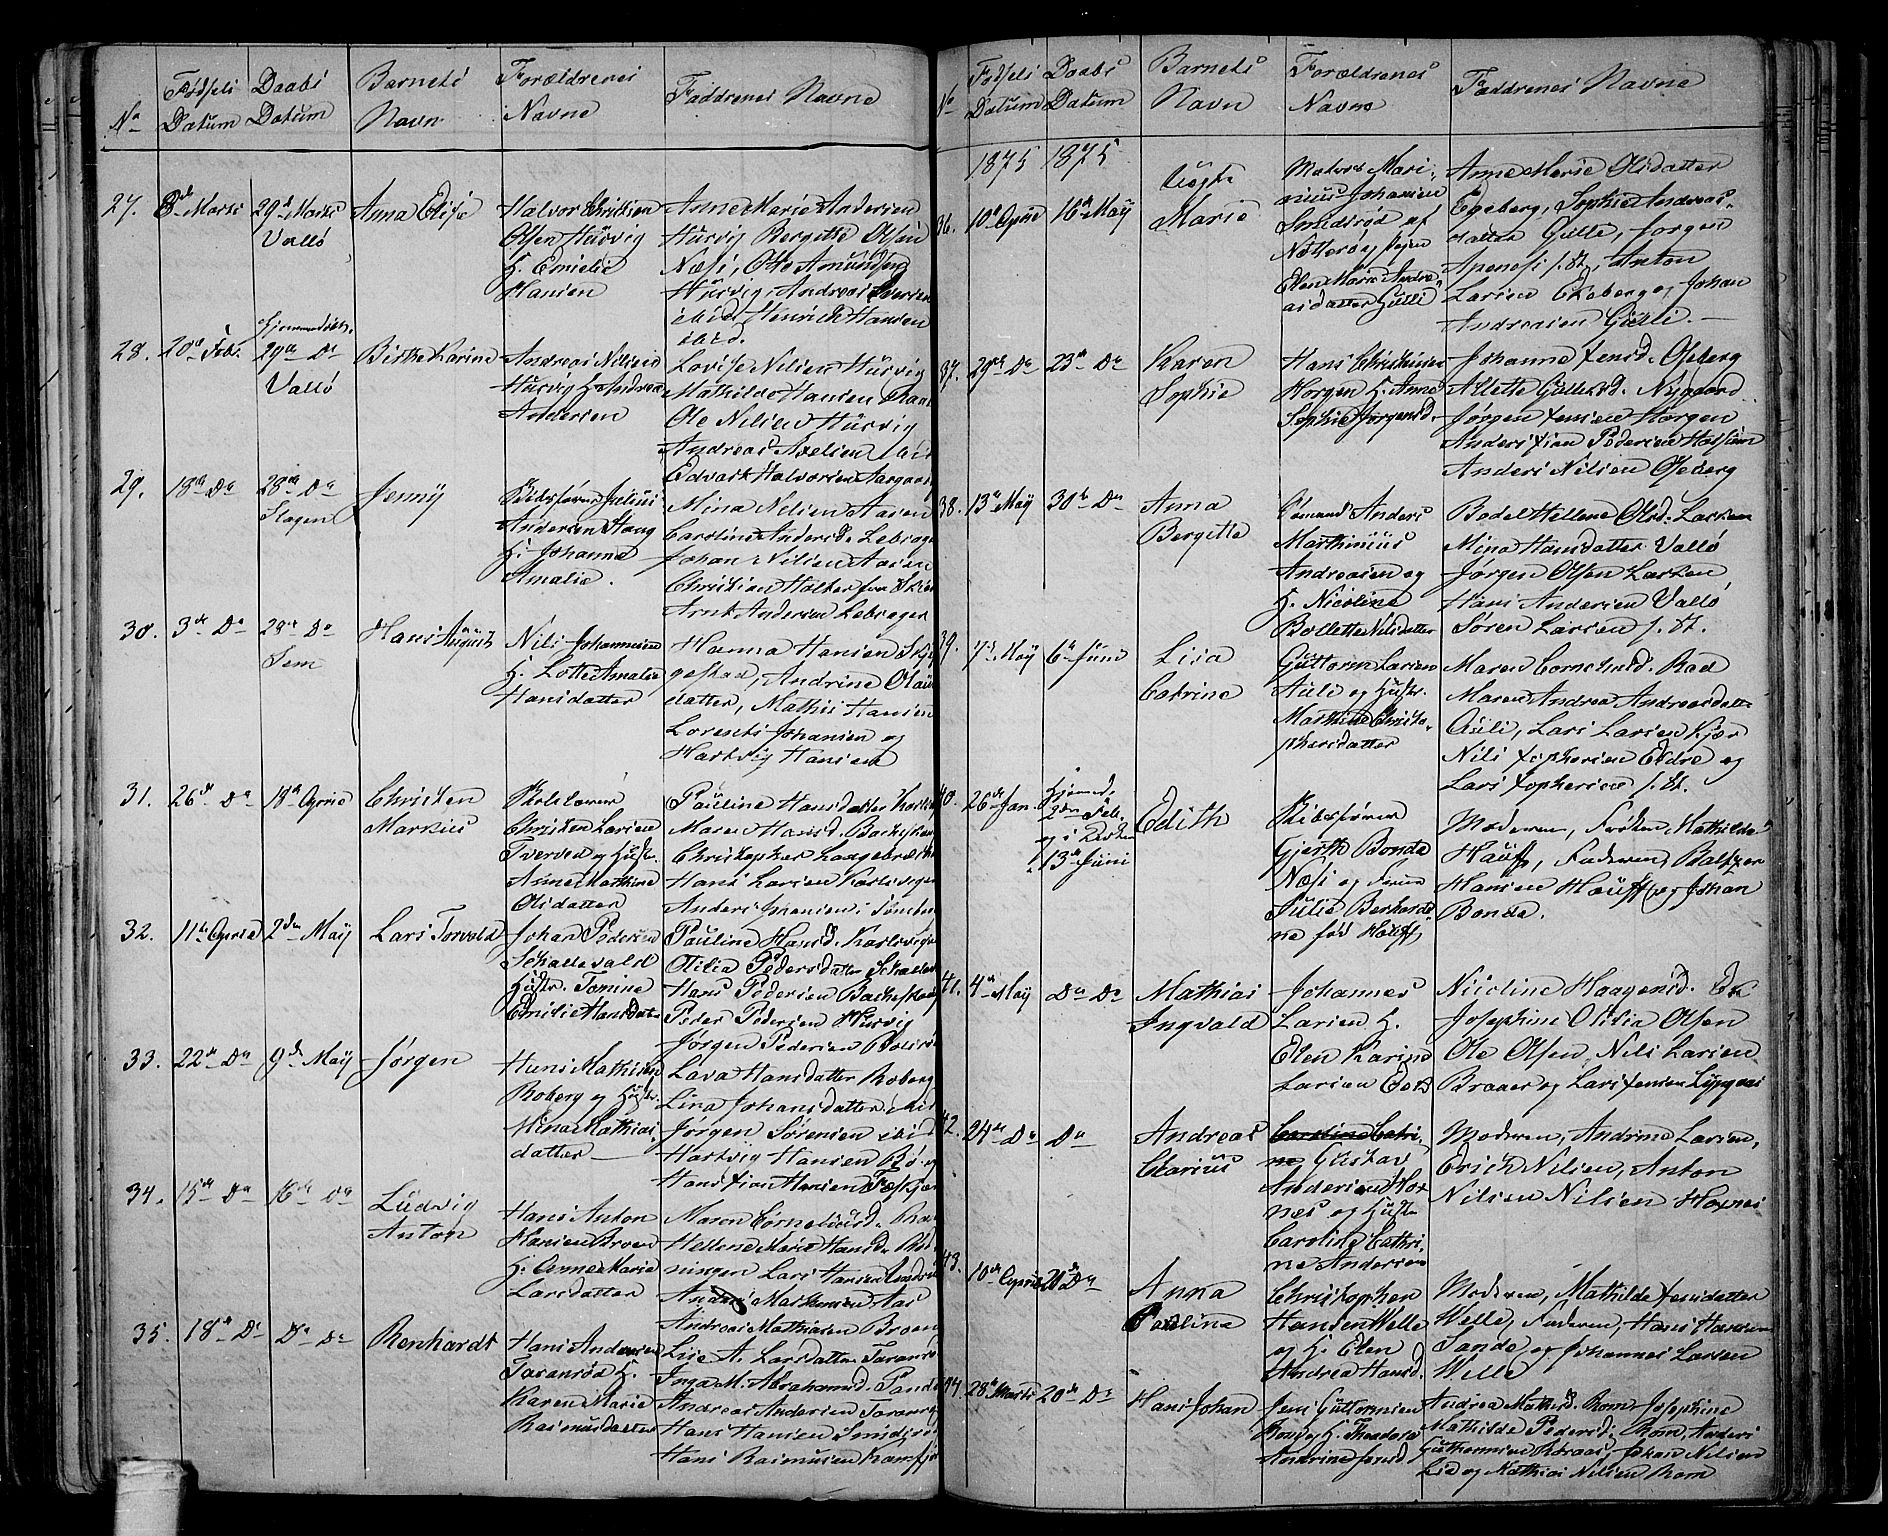 No
Fødsels Datum
Daabs Datum
Barnets Navn
Forældrenes Navne
Faddrenes Navne
27.
8de Marts
29de Marts
Vallö
Anna Elise
Halvor Christian
Olsen Husvig
H. Emielie
Hansen
Anne Marie Andersen
Husvig Bergitte Olsen
Næss, Ole Amundsen
Husvig, Andreas Iversen
ibid. Henrich Hansen
ibid.
28.
20de Feb.
29de Do
Vallö
Birthe Karine
Andreas Nilsen
Husvig H. Andrea
Andersen
Lovise Nilsen Husvig
Mathilde Hansen
Ole Nilsen Husvig
Andreas Axelsen ibid
Edvart Halvorsen
29.
18de Do
28de Do
Slagen
Jenny
Skibsfører Julius
Andersen Haug
H. Johanna
Amalie.
Mina Nilsen Aasen
Caroline Andersd. Lebesage
Johan Nilsen Aasen
Christian Holter fra Skien
Arnt Andersen Lebesager
30.
3de Do
29de Do
Sem
Hans August
Nils Johannesen
H. Lotte Amalie
Hansdatter
Hanna Hansen
gestad, Andrine Olaus
datter, Mathis Hansen
Lorents Johansen og
Hartvig Hansen
31.
26de Do
18de April
Christen
Markus
Christen Larsen
Tverved og Hustr.
Anne Marthine
Olsdatter
Pauline Hansdatter
Maren Hansd. Backeskov
Christopher
Hans Larsen Karlsvigen
Anders Jansen i Tönsberg
32.
11te April
2den May
Lars Torvald
Johan Pedersen
Schallevald
Hustr. Tomine
Emilie Hansdat.
Pauline Hansd. Karlsvigen
Otilia Pedersdatter
Hans Pedersen
Peder Pedersen Husvig
Jørgen Pedersen
33.
22de Do
9de May
Jørgen
Hans Mathisen
Roberg og Hustr.
Mina Mathias-
datter
Lava Hansdatter Roberg
Lina Johansdatter ibid
Jørgen Sørensen ibid
Hartvig Hansen Bö og
Hans Xtian Hansen
34.
15de Do
16de Do
Ludvig
Anton
Hans Anton
Hansen Broen
H. Anne Marie
Larsdatter
Maren Corneliusd.
Hellene Marie Hansd.
ningen Lars Hansen
Anders Mathisen Aas
Andreas Mathiasen Broen
35.
18de Do
Do Do
Renhardt
Hans Andersen
Taranröa H.
Karen Marie
Rasmusdatter
Lise A. Larsdatter Taranrö
Inga M. Abrahamsd.
Andreas Andersen
Hans Hansen Smidsröd
Hans Rasmusen Ramfjor
No
Fødsels Datum
Daabs Datum
Barnets Navn
Forældrenes Navne
Faddrenes Navne
1875 1875
36.
10de April
16de May
Uægte
Marie
Matros Mari-
nius Johansen
Smidsröd af
Nötterö, Pigen
Elen Marie Andre-
asdatter Gulli
Anne Marie Olsdatter
Egeberg, Sophie Andreas-
datter Gulli, Jørgen
Apenes s. St, Anton
Larsen Ekeberg og Johan
Andreasen Gulli.
37.
29de Do
23de Do
Karen
Sophie
Hans Christiansen
Horgen H. Anne
Sophie Jørgensd.
Johanne Jensd. Oseberg
Allette Gullesd. Nygaard
Jørgen Jensen Horgen
Anders Xtian Pedersen
Anders Nilsen Oseberg
38.
13de May
30te Do
Anna
Bergitte
Sömand Anders
Marthinius
Andreasen og
H. Nicoline
Bollette Nilsdatter
Bodel Hellene Olsd. Larsen
Mina Hansdatter Vallö
Jørgen Olsen Larsen
Hans Andersen Vallö
Sören Larsen s. St.
39.
7de May
6te Juni
Lisa
Catrine
Guttorm Larsen
Auli og Hustr.
Marthine Christo-
phersdatter
Maren Cornelsd. Rad
Maren Andrea Andreasdatt.
Auli, Lars Larsen Kjær
Nils Xtophersen Eldre og
Lars Xtophersen s. St.
40.
26de Jan.
Hjemmed.
2den Feb.
og i Kirken
13de Juni
Edith
Skibsfører
Gjerth Bonda
Næss og Frue
Julie Berhardi-
ne fød Hauff
Moderen, Frøken Mathilde
Hauff, Faderen, Baltzer
Hansen Hauff og Johan
Bonda.
41.
4de May
Do Do
Mathias
Ingvald
Johannes
Larsen H.
Elen Karine
Larsen Eek
Nicoline Haagensd. Eek
Josephine Otilia Olsen
Ole Olsen, Nils Larsen
Braaer og Lars Jensen
42.
24de Do
Do
Andreas
Clarius
Caroline Catri-
ne Gustav
Andersen Hox-
nes og Hustr.
Caroline Cathri-
ne Andersen
Moderen, Andrine Larsen,
Erich Nilsen, Anton
Nilsen Nilsen Hoxnes
43.
10de April
20de Do
Anna
Paulina
Christopher
Hansen Welle
og H. Elen
Andrea Hansd.
Moderen, Mathilde Jensdatter
Welle, Faderen, Hans Hansen
Sande, og Johannes Larsen
Welle
44.
28de Marts
20de Do
Hans Johan
Jens Guttormsen
Rom og H. Theodora
Andrine Jensd.
Andrea Mathisd. Rom, Josephine
Mathilde Pedersd. Rom, Anders
Guthormsen Braas, Johan Nilsen
Eid og Mathias Nilsen Rom